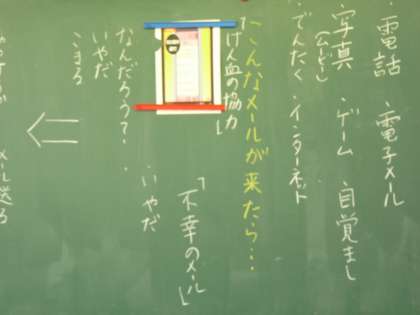 ・電話 ・電子メール
・写真 ・ゲーム ・目覚まし
(ムービー)
・でんたく ・インターネット
こんなメールが来たら・・・
「げん血の協力」
「不幸のメール」
なんだろうて・・・
いやだ
こまる
・いやだ
メール送ろ